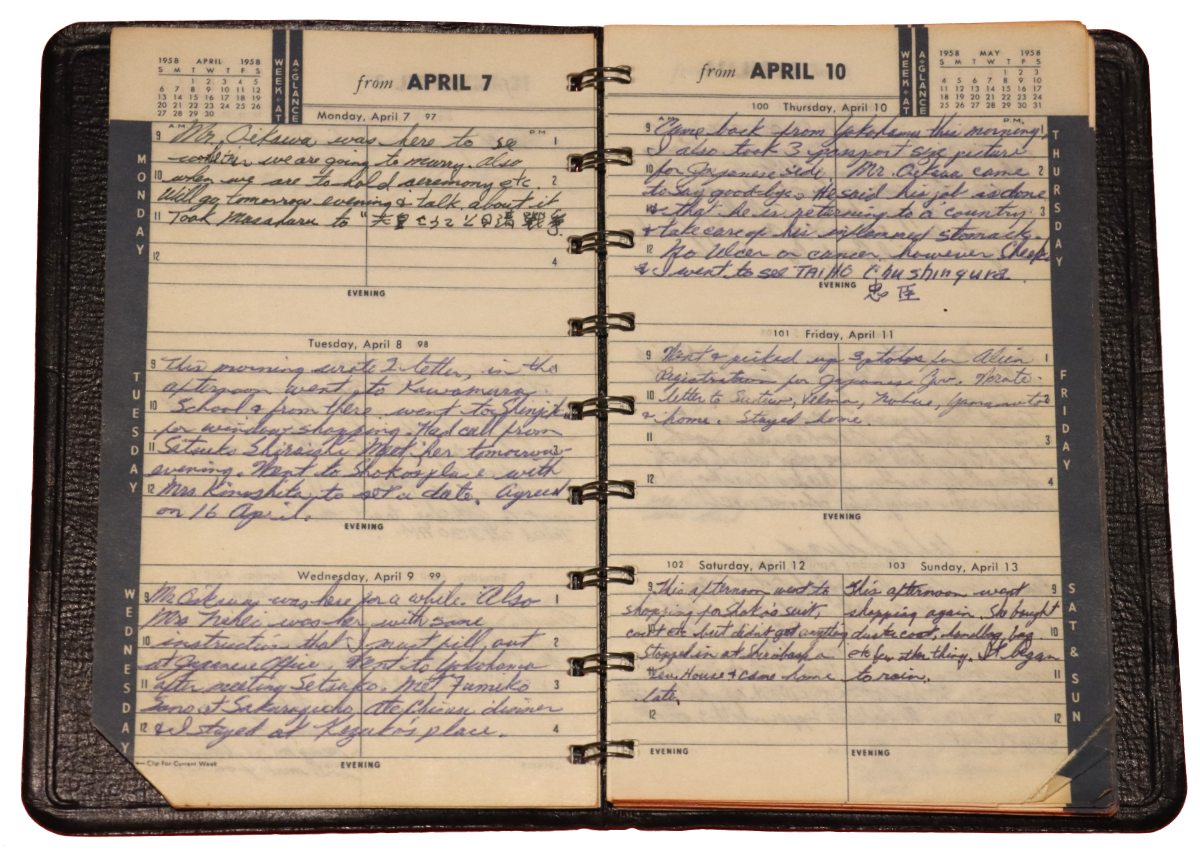 1958 APRIL 1958
S M T W T F S
1 2 3 4 5
6 7 8 9 10 11 12
13 14 15 16 17 18 19
20 21 22 23 24 25 26
27 28 29 30
WEEK-AT
A-GLANCE
from APRIL 7
Monday, April 7 97
A.M. P.M.
MONDAY
9 Mr. Oikawa was here to see 1
we are going to marry. Also
10 when we are to hold ceremony etc. 2
Will go tomorrow evening & talk about it
11 Took Masaharu to "天皇 日 戦争
12 4
EVENING
Tuesday, April 8 98
TUESDAY
9 This morning wrote 2 letter, in the
afternoon went to Kawamura
10 School & from there went to Shinjuku
for window shopping. Had call from
11 Setsuko Shiraishi. Meet her tomorrow
evening. Went to Shoko's place with
12 Mrs Kinoshita to set a date. Agreed
on 16 April.
EVENING
Wednesday, April 9 99
WEDNESDAY
9 Mr Oikawa was here for a while. Also 1
Mrs was her with some
10 instruction that I must fill out 2
at Japanese Office. Went to Yokohama
11 after meeting Setsuko. Meet Fumiko 3
Sano at Sakuragicho. Ate Chinese dinner
12 & I stayed at place. 4
← Clip For Current Week
EVENING
WEEK-AT
A-GLANCE
from APRIL 10
1958 MAY 1958
S M T W T F S
1 2 3
4 5 6 7 8 9 10
11 12 13 14 15 16 17
18 19 20 21 22 23 24
25 26 27 28 29 30 31
100 Thursday, April 10
A.M. P.M.
THURSDAY
9 Came back from Yokohama this morning 1
I also took 3 passport size picture
10 for Japanese side. Mr. Oikawa came 2
to say goodbye. He said his job is done
11 & that he is returning to a country 3
& take care of his inflammed stomach.
12 No Ulcer or cancer, however
& I went to see TAIHO Chushingura
EVENING
忠臣
101 Friday, April 11
FRIDAY
9 Went & picked up 3 photos for Alien 1
Registration for Japanese Gov. Wrote
10 letter to Velma, Nobue, Yamamoto 2
& home. Stayed home.
11 3
12 4
EVENING
102 Saturday, April 12
9 This afternoon went to
shopping for Shoko's suit,
coat etc but didn't get anything
Stopped in at
House & came home
late,
12
EVENING
103 Sunday, April 13
SAT & SUN
This afternoon went 9
shopping again. She bought
dustcoat, handbag, bag 10
etc few other thing. It began
to rain. 11
12
EVENING